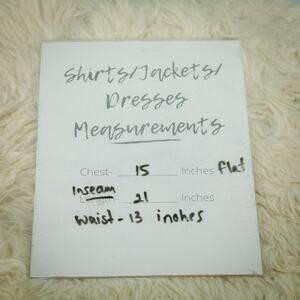 Shirts/Jackets/
Dresses
Measurements
Chest- 15 Inches flat
Inseam
Length 21 Inches
waist - 13 inches